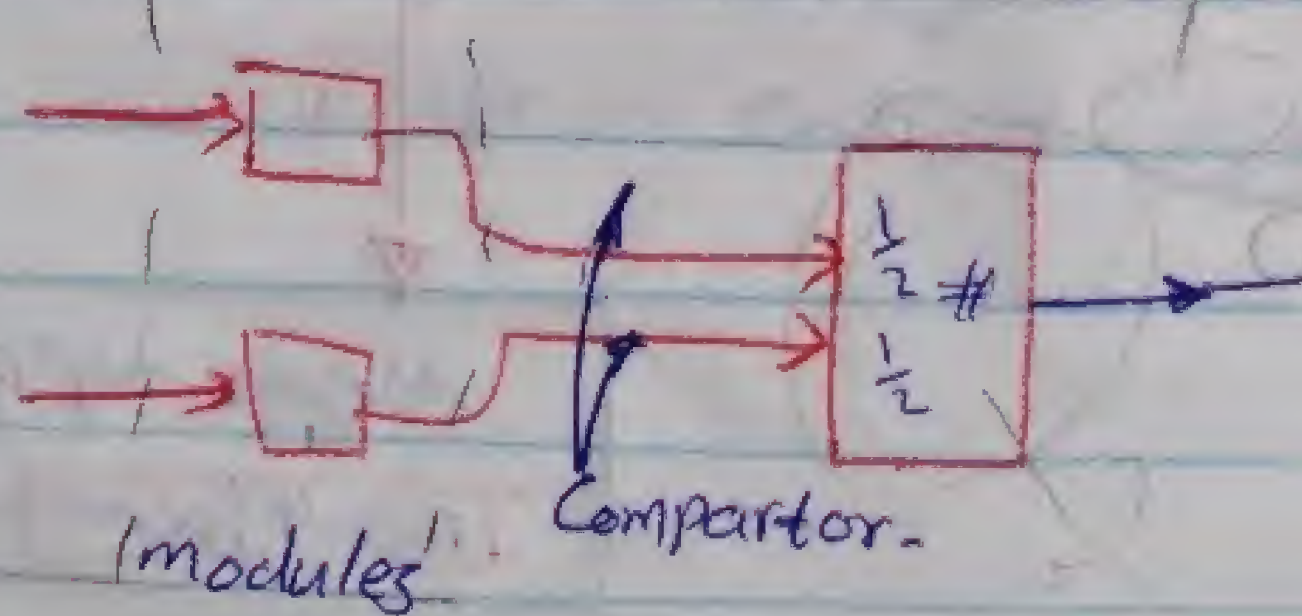 1/2
#
1/2
Compartor.
Modules